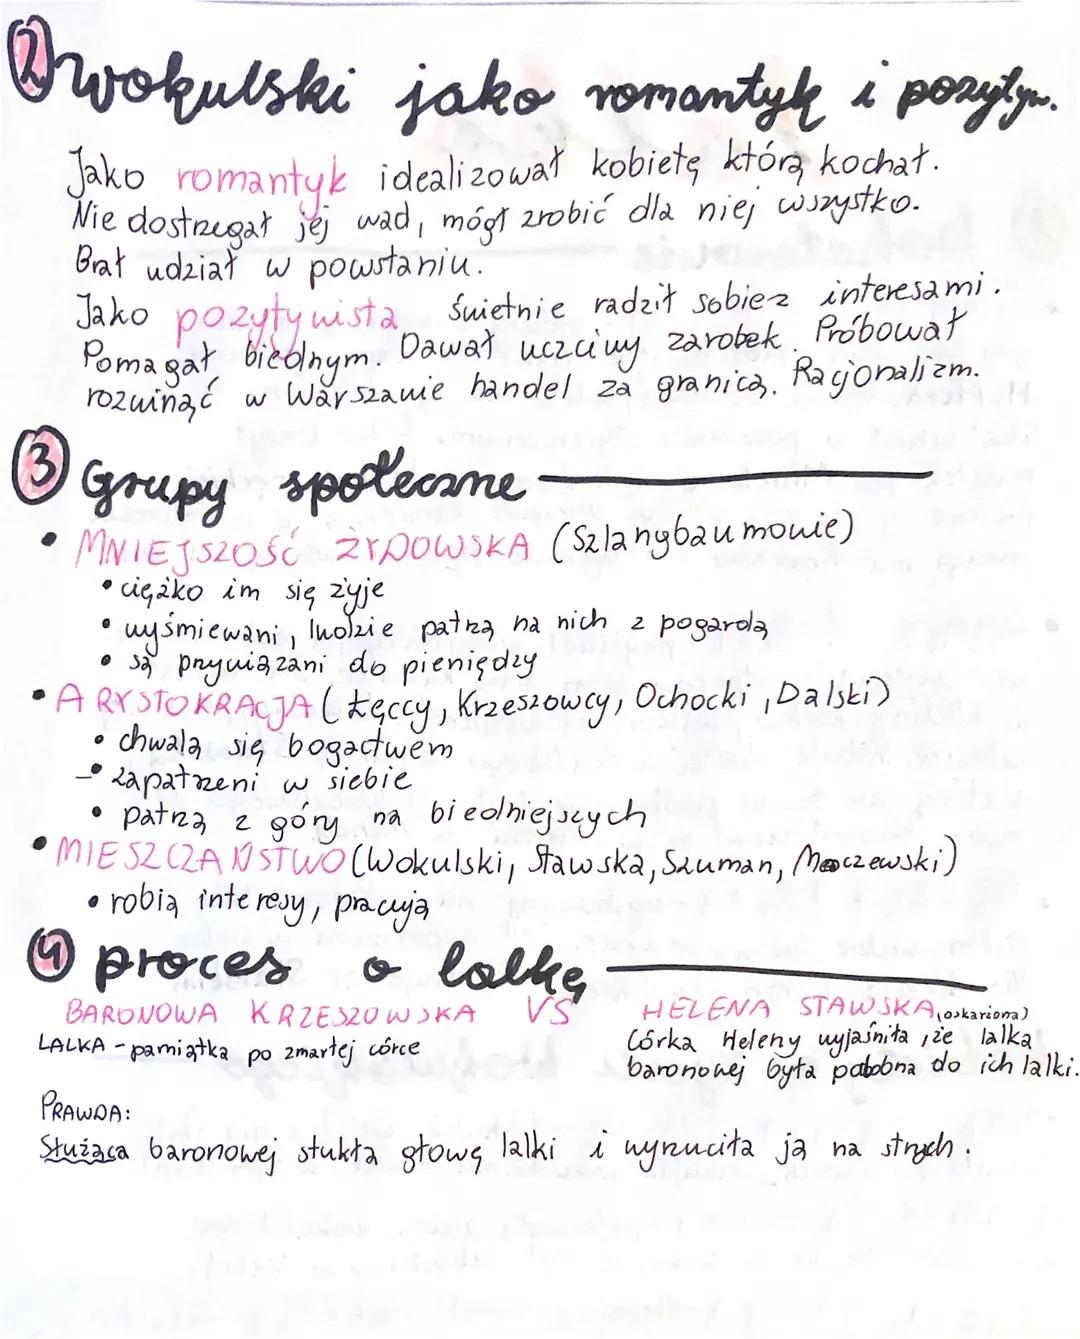 2 Wokulski jako romantyk i pozytyw.
Jako romantyk idealizował kobietę którą kochał.
Nie dostrzegał jej wad, mógł zrobić dla niej wszystko.
Brał udział w powstaniu.
Jako pozytywista świetnie radził sobie z interesami.
Pomagał biednym. Dawał uczciwy zarobek Próbował
rozwinąć w Warszawie handel za granicą. Racjonalizm.
3 Grupy społeczne
• MNIEJSZOŚĆ ŻYDOWSKA (Szlangbaumowie)
• ciężko im się żyje
• wyśmiewani, ludzie patrzą na nich z pogardą
• są przywiązani do pieniędzy
• ARYSTOKRACJA (Łęccy, Krzeszowcy, Ochocki, Dalski)
• chwalą się bogactwem
• zapatrzeni w siebie
• patrzą z góry na biedniejszych
• MIESZCZAŃSTWO (Wokulski, Stawska, Szuman, Mraczewski)
• robią interesy, pracują
4 proces o lalkę
BARONOWA KRZESZOWSKA VS HELENA STAWSKA (oskarżona)
LALKA - pamiątka po zmarłej córce
Córka Heleny wyjaśniła, że lalka
baronowej była podobna do ich lalki.
PRAWDA:
Służąca baronowej stukła głowę lalki i wyrzuciła ją na strych.